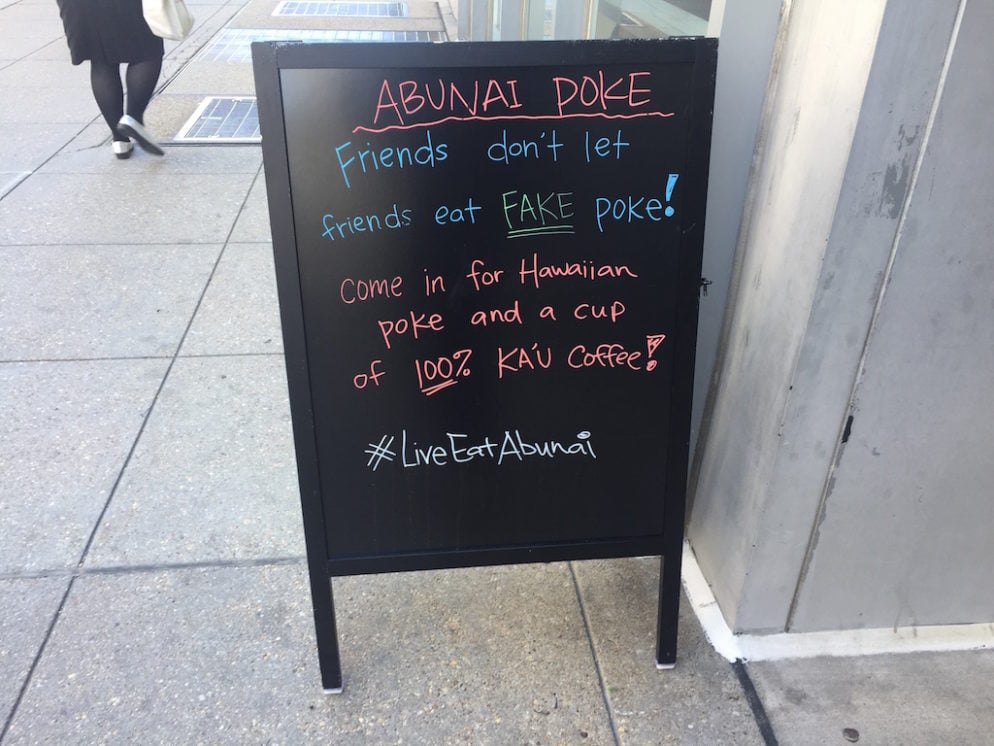 ABUNAI POKE
Friends don't let
friends eat FAKE poke!
come in for Hawaiian
poke and a cup
of 100% KA'U Coffee!
#LiveEatAbunai